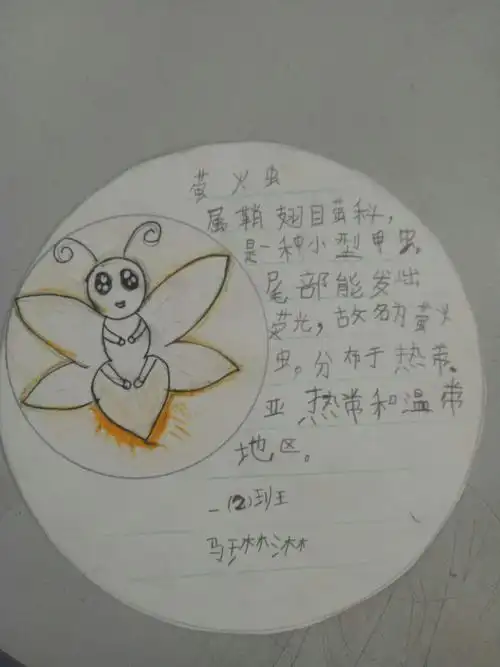 萤火虫
属鞘翅目萤科，
是一种小型甲虫，
尾部能发出
荧光，故名为萤火
虫。分布于热带。
亚热带和温带
地区。
一（2）班
马琳淋